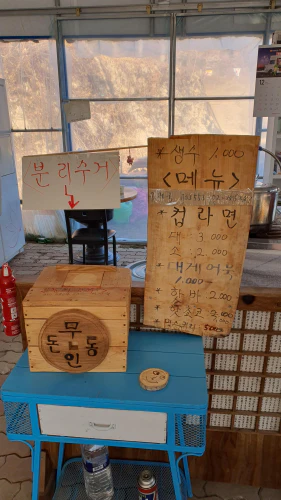 분리수거
* 생수 1.000
<메뉴>
* 컵라면
대 3.000
소 2.000
* 대게어묵
1.000
* 핫바 2.000
* 핫초코
무인
돈통
12